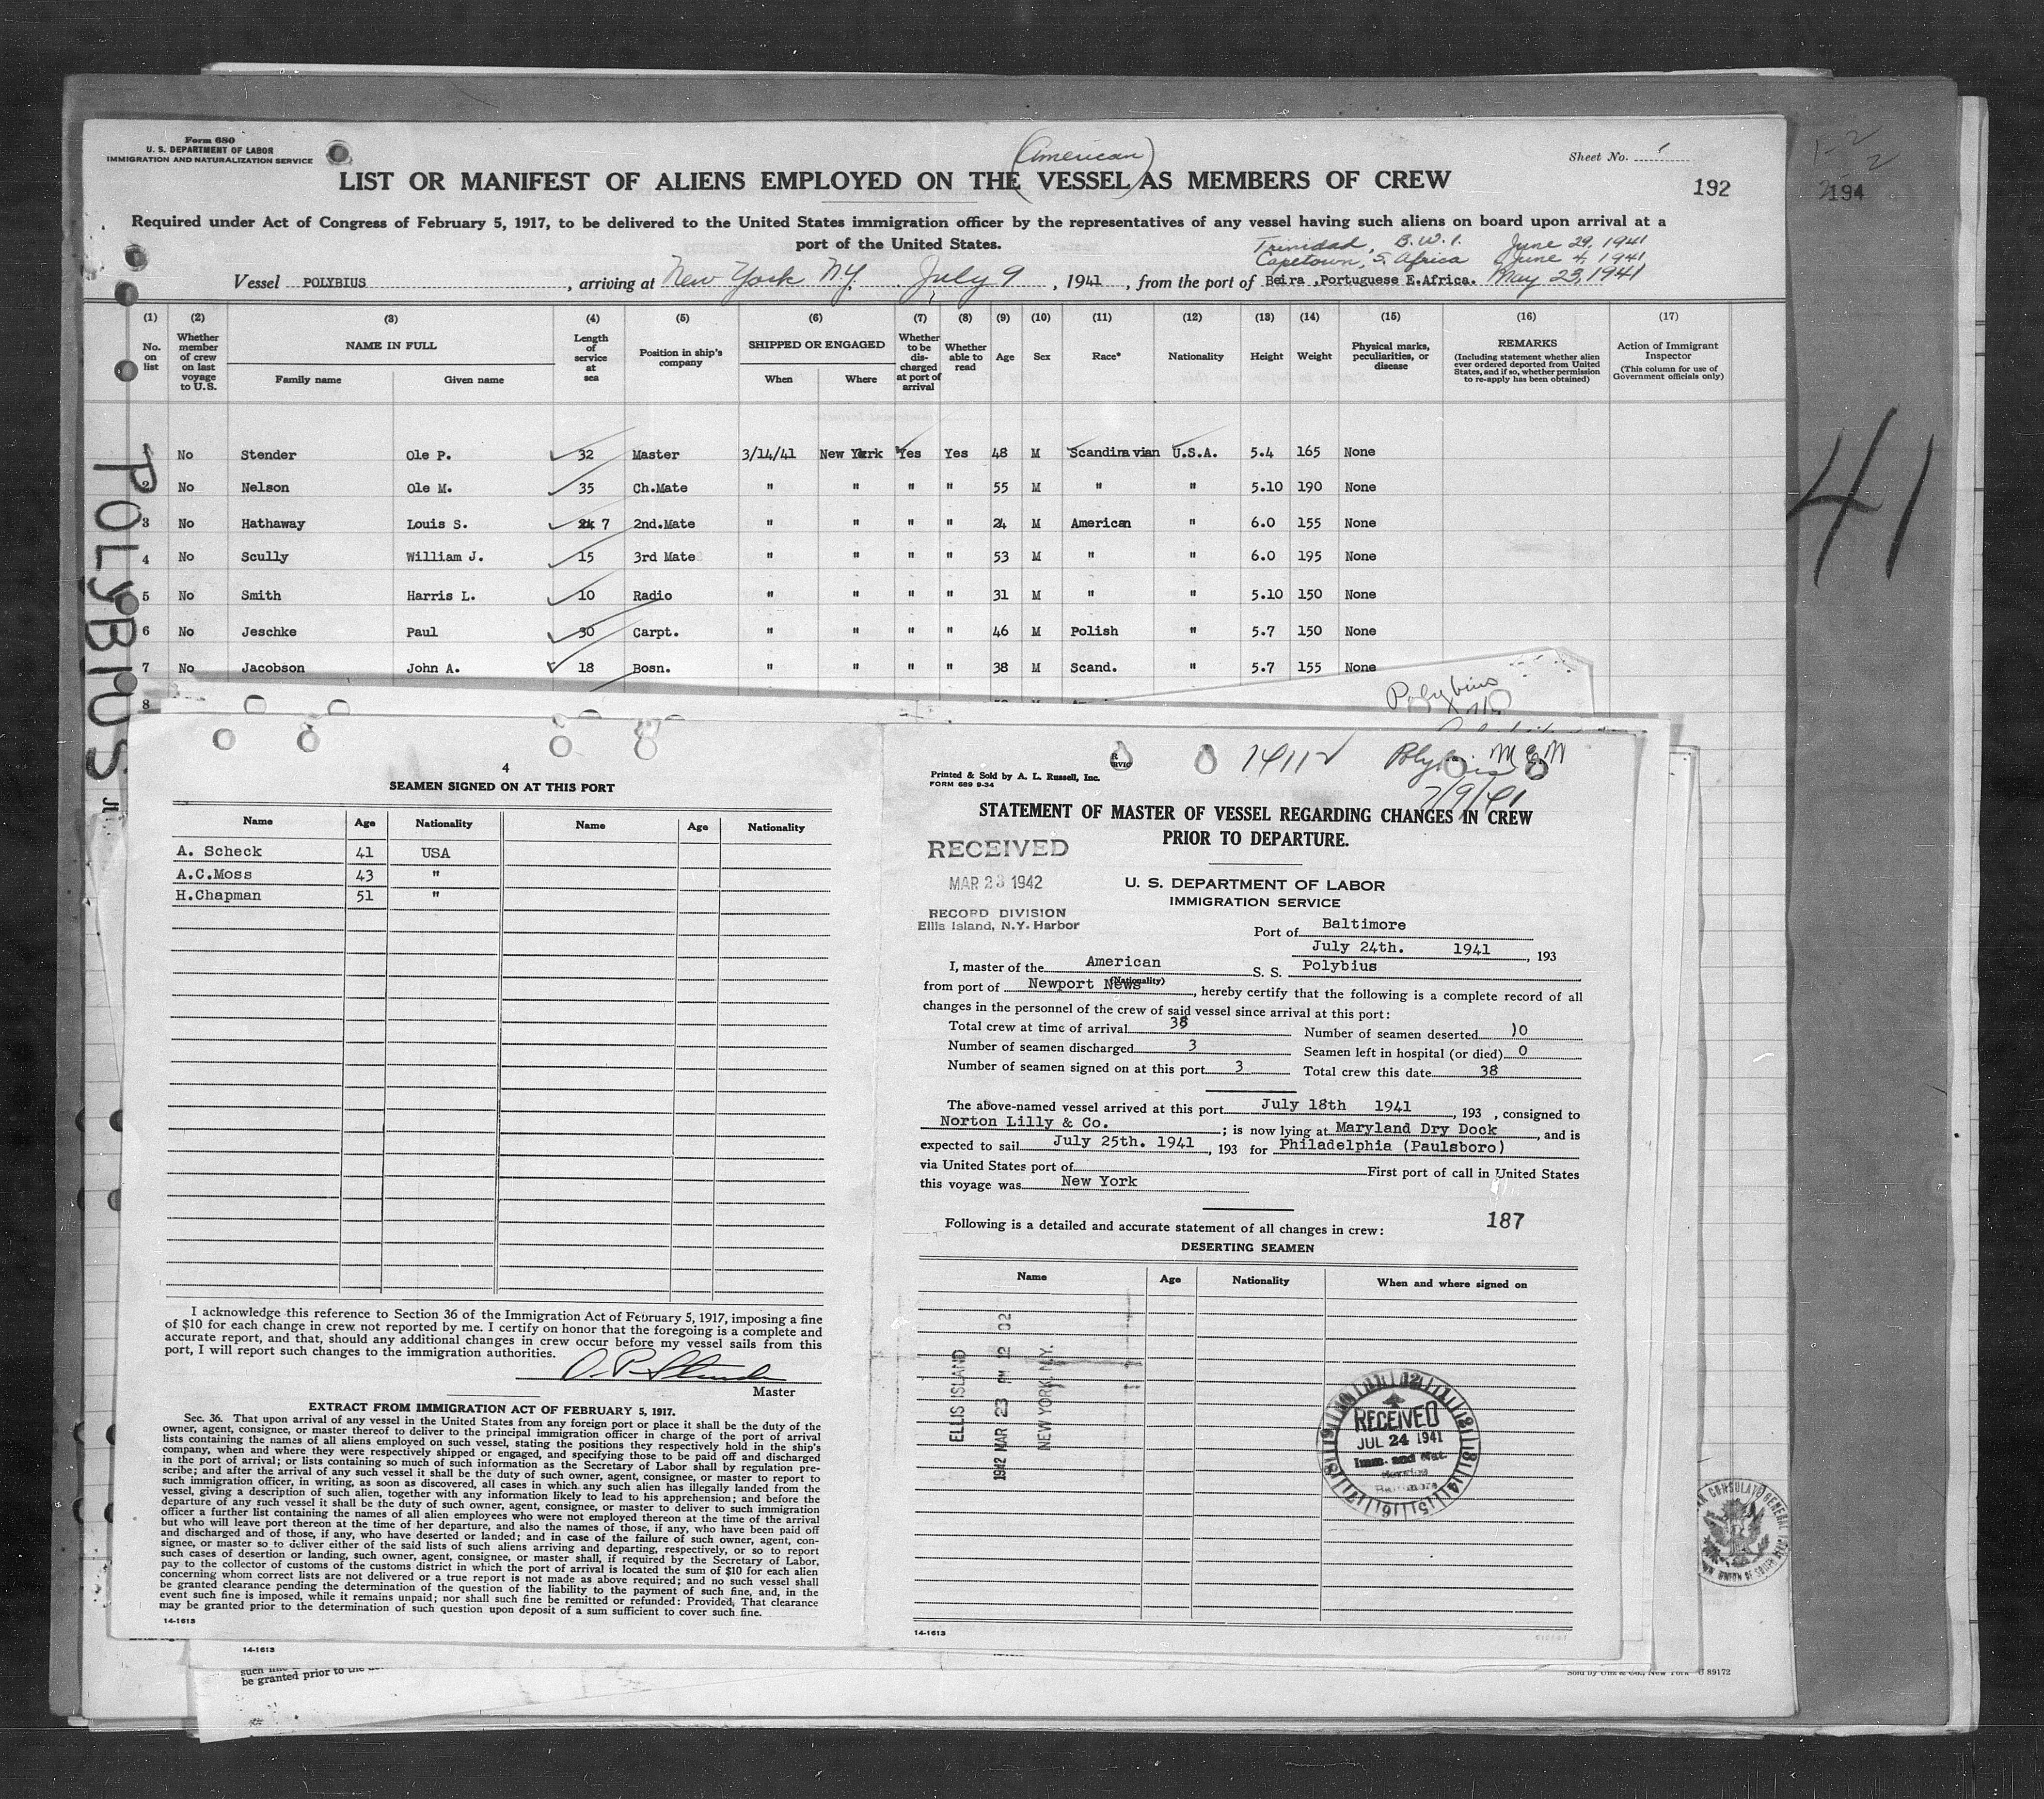 Form 680
U. S. DEPARTMENT OF LABOR
IMMIGRATION AND NATURALIZATION SERVICE
Sheet No. 1
(American)
LIST OR MANIFEST OF ALIENS EMPLOYED ON THE VESSEL AS MEMBERS OF CREW
192
194
Required under Act of Congress of February 5, 1917, to be delivered to the United States immigration officer by the representatives of any vessel having such aliens on board upon arrival at a
port of the United States.
Trinidad, B.W.I. June 29, 1941
Capetown, S. Africa June 4, 1941
Vessel POLYBIUS, arriving at New York N.Y. July 9, 1941, from the port of Beira ,Portuguese E.Africa. May 23, 1941
(1) (2) (3) (4) (5) (6) (7) (8) (9) (10) (11) (12) (13) (14) (15) (16) (17)
No. on list
Whether member of crew on last voyage to U.S.
NAME IN FULL
Family name
Given name
Length of service at sea
Position in ship's company
SHIPPED OR ENGAGED
When
Where
Whether to be discharged at port of arrival
Whether able to read
Age
Sex
Race*
Nationality
Height
Weight
Physical marks, peculiarities, or disease
REMARKS
(Including statement whether alien ever ordered deported from United States, and if so, whether permission to re-apply has been obtained)
Action of Immigrant Inspector
(This column for use of Government officials only)
1 No Stender Ole P. 32 Master 3/14/41 New York Yes Yes 48 M Scandinavian U.S.A. 5.4 165 None
2 No Nelson Ole M. 35 Ch.Mate " " " " 55 M " " 5.10 190 None
3 No Hathaway Louis S. 7 2nd.Mate " " " " 24 M American " 6.0 155 None
4 No Scully William J. 15 3rd Mate " " " " 53 M " " 6.0 195 None
5 No Smith Harris L. 10 Radio " " " " 31 M " " 5.10 150 None
6 No Jeschke Paul 30 Carpt. " " " " 46 M Polish " 5.7 150 None
7 No Jacobson John A. 18 Bosn. " " " " 38 M Scand. " 5.7 155 None
8
POLYBIUS
41
Polybius
4
SEAMEN SIGNED ON AT THIS PORT
Name Age Nationality Name Age Nationality
A. Scheck 41 USA
A.C.Moss 43 "
H.Chapman 51 "
I acknowledge this reference to Section 36 of the Immigration Act of February 5, 1917, imposing a fine
of $10 for each change in crew not reported by me. I certify on honor that the foregoing is a complete and
accurate report, and that, should any additional changes in crew occur before my vessel sails from this
port, I will report such changes to the immigration authorities.
O. P. Stender
Master
EXTRACT FROM IMMIGRATION ACT OF FEBRUARY 5, 1917.
Sec. 36. That upon arrival of any vessel in the United States from any foreign port or place it shall be the duty of the
owner, agent, consignee, or master thereof to deliver to the principal immigration officer in charge of the port of arrival
lists containing the names of all aliens employed on such vessel, stating the positions they respectively hold in the ship's
company, when and where they were respectively shipped or engaged, and specifying those to be paid off and discharged
in the port of arrival; or lists containing so much of such information as the Secretary of Labor shall by regulation pre-
scribe; and after the arrival of any such vessel it shall be the duty of such owner, agent, consignee, or master to report to
such immigration officer, in writing, as soon as discovered, all cases in which any such alien has illegally landed from the
vessel, giving a description of such alien, together with any information likely to lead to his apprehension; and before the
departure of any such vessel it shall be the duty of such owner, agent, consignee, or master to deliver to such immigration
officer a further list containing the names of all alien employees who were not employed thereon at the time of the arrival
but who will leave port thereon at the time of her departure, and also the names of those, if any, who have been paid off
and discharged and of those, if any, who have deserted or landed; and in case of the failure of such owner, agent, con-
signee, or master so to deliver either of the said lists of such aliens arriving and departing, respectively, or so to report
such cases of desertion or landing, such owner, agent, consignee, or master shall, if required by the Secretary of Labor,
pay to the collector of customs of the customs district in which the port of arrival is located the sum of $10 for each alien
concerning whom correct lists are not delivered or a true report is not made as above required; and no such vessel shall
be granted clearance pending the determination of the question of the liability to the payment of such fine, and, in the
event such fine is imposed, while it remains unpaid; nor shall such fine be remitted or refunded: Provided, That clearance
may be granted prior to the determination of such question upon deposit of a sum sufficient to cover such fine.
14-1613
14-1613
be granted prior to the
14112
Polybius M E M
7/9/41
Printed & Sold by A. L. Russell, Inc.
FORM 689 9-34
STATEMENT OF MASTER OF VESSEL REGARDING CHANGES IN CREW
PRIOR TO DEPARTURE.
RECEIVED
MAR 23 1942
RECORD DIVISION
Ellis Island, N.Y. Harbor
U. S. DEPARTMENT OF LABOR
IMMIGRATION SERVICE
Port of Baltimore
July 24th. 1941, 193
I, master of the American S. S. Polybius
(Nationality)
from port of Newport News, hereby certify that the following is a complete record of all
changes in the personnel of the crew of said vessel since arrival at this port:
Total crew at time of arrival 38 Number of seamen deserted 0
Number of seamen discharged 3 Seamen left in hospital (or died) 0
Number of seamen signed on at this port 3 Total crew this date 38
The above-named vessel arrived at this port July 18th 1941, 193 , consigned to
Norton Lilly & Co. ; is now lying at Maryland Dry Dock, and is
expected to sail July 25th. 1941, 193 for Philadelphia (Paulsboro)
via United States port of First port of call in United States
this voyage was New York
187
Following is a detailed and accurate statement of all changes in crew:
DESERTING SEAMEN
Name Age Nationality When and where signed on
ELLIS ISLAND
1942 MAR 23 PM 12 02
NEW YORK, N.Y.
RECEIVED
JUL 24 1941
Imm. and Nat.
Service
Baltimore
14-1613
Sold by Unz & Co., New York
89172